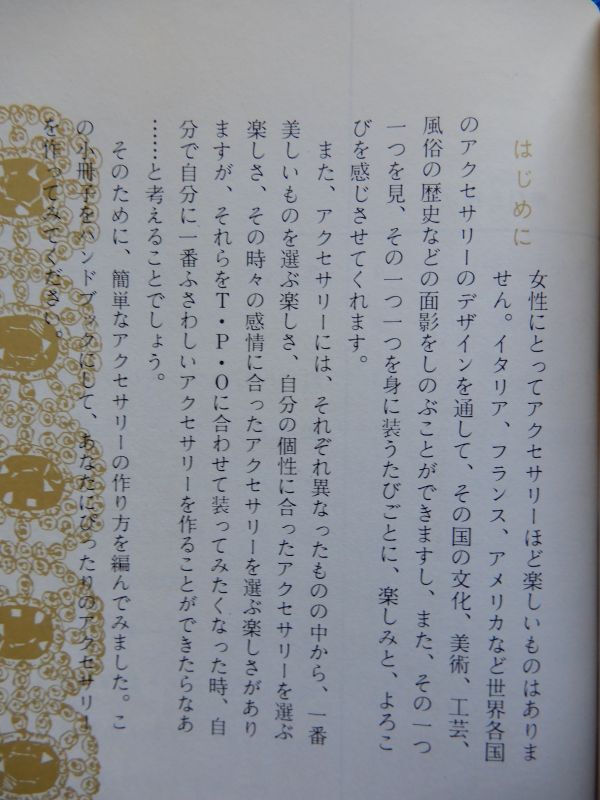 はじめに
女性にとってアクセサリーほど楽しいものはありま
せん。イタリア、フランス、アメリカなど世界各国
のアクセサリーのデザインを通して、その国の文化、美術、工芸、
風俗の歴史などの面影をしのぶことができますし、また、その一つ
一つを見、その一つ一つを身に装うたびごとに、楽しみと、よろこ
びを感じさせてくれます。
また、アクセサリーには、それぞれ異なったものの中から、一番
美しいものを選ぶ楽しさ、自分の個性に合ったアクセサリーを選ぶ
楽しさ、その時々の感情に合ったアクセサリーを選ぶ楽しさがあり
ますが、それらをT・P・Oに合わせて装ってみたくなった時、自
分で自分に一番ふさわしいアクセサリーを作ることができたらなあ
……と考えることでしょう。
そのために、簡単なアクセサリーの作り方を編んでみました。こ
の小冊子をハンドブックにして、あなたにぴったりのアクセサリー
を作ってみてください。